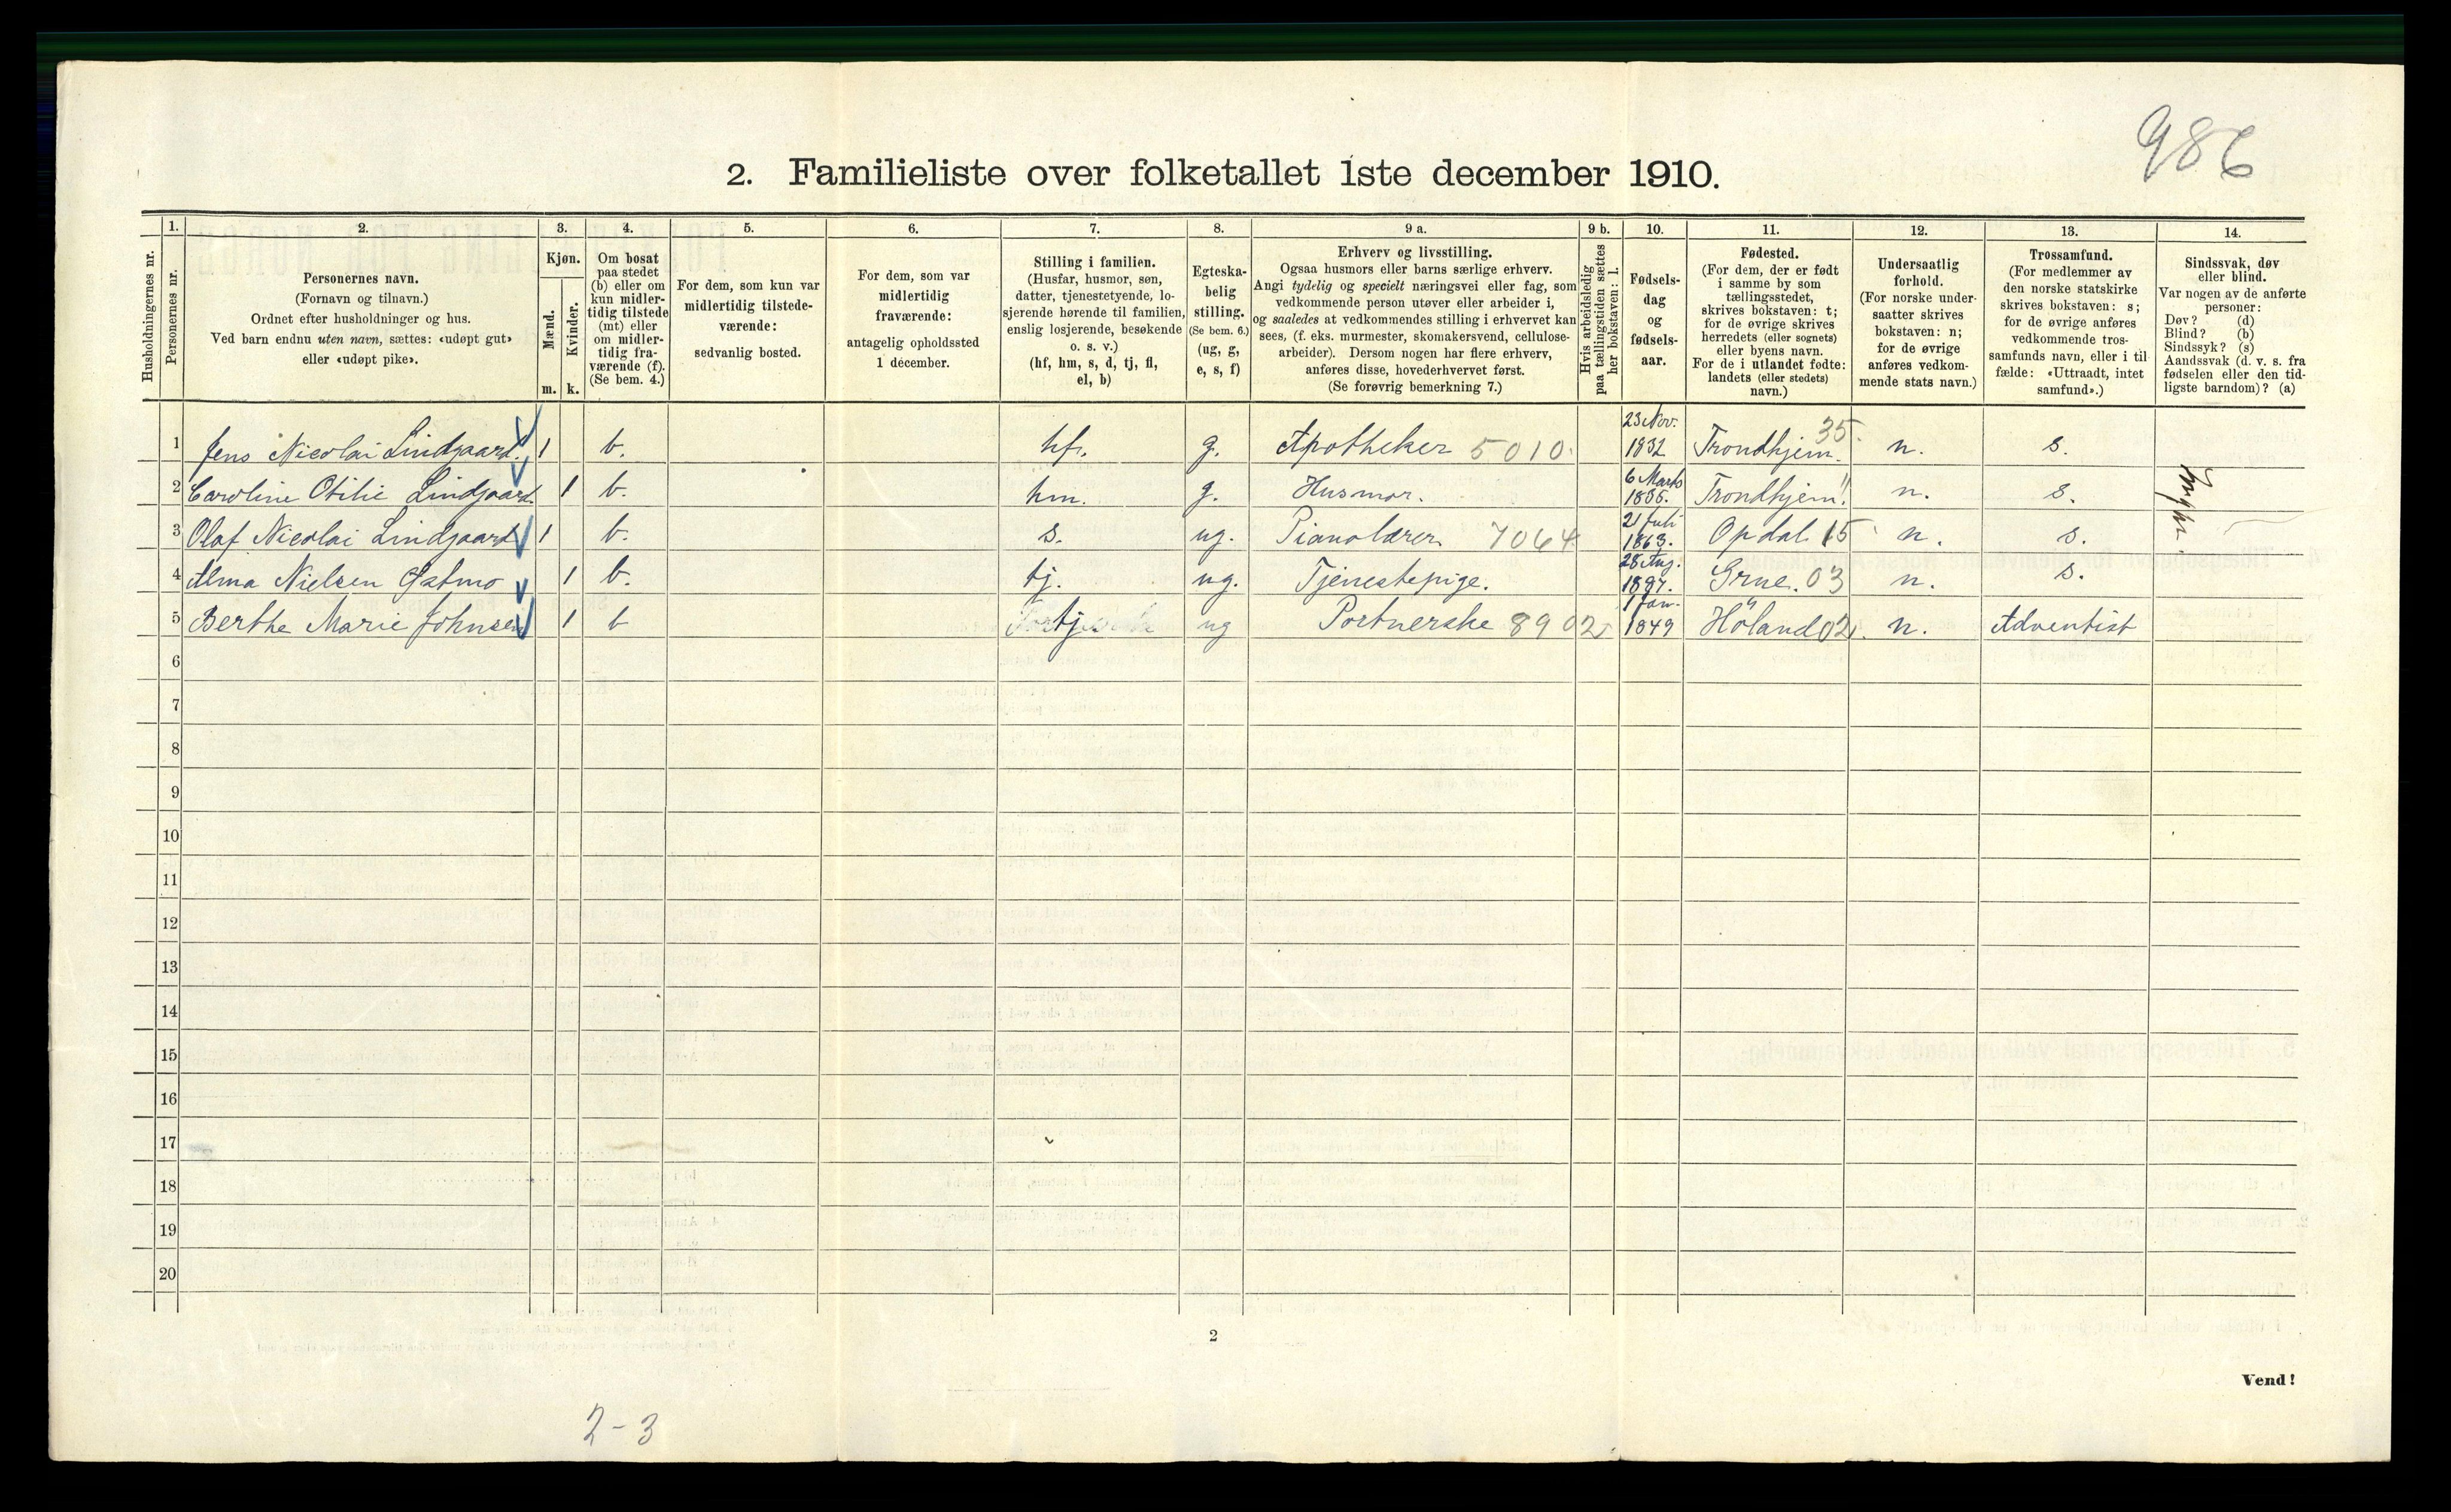 986
2. Familieliste over folketallet 1ste december 1910.
Husholdningernes nr.
1.
Personernes nr.
2.
Personernes navn.
(Fornavn og tilnavn.)
Ordnet efter husholdninger og hus.
Ved barn endnu uten navn, sættes: «udøpt gut»
eller «udøpt pike».
3.
Kjøn.
Mænd.
Kvinder.
m. k.
4.
Om bosat
paa stedet
(b) eller om
kun midler-
tidig tilstede
(mt) eller
om midler-
tidig fra-
værende (f).
(Se bem. 4.)
5.
For dem, som kun var
midlertidig tilstede-
værende:
sedvanlig bosted.
6.
For dem, som var
midlertidig
fraværende:
antagelig opholdssted
1 december.
7.
Stilling i familien.
(Husfar, husmor, søn,
datter, tjenestetyende, lo-
sjerende hørende til familien,
enslig losjerende, besøkende
o. s. v.)
(hf, hm, s, d, tj, fl,
el, b)
8.
Egteska-
belig
stilling.
(Se bem. 6.)
(ug, g,
e, s, f)
9 a.
Erhverv og livsstilling.
Ogsaa husmors eller barns særlige erhverv.
Angi tydelig og specielt næringsvei eller fag, som
vedkommende person utøver eller arbeider i,
og saaledes at vedkommendes stilling i erhvervet kan
sees, (f. eks. murmester, skomakersvend, cellulose-
arbeider). Dersom nogen har flere erhverv,
anføres disse, hovederhvervet først.
(Se forøvrig bemerkning 7.)
9 b.
Hvis arbeidsledig
paa tællingstiden sættes
her bokstaven: l.
10.
Fødsels-
dag
og
fødsels-
aar.
11.
Fødested.
(For dem, der er født
i samme by som
tællingsstedet,
skrives bokstaven: t;
for de øvrige skrives
herredets (eller sognets)
eller byens navn.
For de i utlandet fødte:
landets (eller stedets)
navn.)
12.
Undersaatlig
forhold.
(For norske under-
saatter skrives
bokstaven: n;
for de øvrige
anføres vedkom-
mende stats navn.)
13.
Trossamfund.
(For medlemmer av
den norske statskirke
skrives bokstaven: s;
for de øvrige anføres
vedkommende tros-
samfunds navn, eller i til-
fælde: «Uttraadt, intet
samfund».)
14.
Sindssvak, døv
eller blind.
Var nogen av de anførte
personer:
Døv? (d)
Blind? (b)
Sindssyk? (s)
Aandssvak (d. v. s. fra
fødselen eller den tid-
ligste barndom)? (a)
1 Jens Nicolai Lindgaard. 1 b. hf. g. Apotheker 5010. 23 Nov. 1832 Trondhjem. 35. n. s.
2 Caroline Otilie Lindgaard. 1 b. hm. g. Husmor. 6 Marts 1836. Trondhjem. " n. s.
3 Olaf Nicolai Lindgaard 1 b. s. ug. Pianolærer 7064 21 Juli 1863. Opdal 15 n. s.
4 Alma Nielsen Østmo 1 b. tj. ug. Tjenestepige. 28 Aug. 1887. Grue. 03 n. s.
5 Berthe Marie Johnsen 1 b tj ug Portnerske 8902 1 Jan. 1849 Höland 02. n. Adventist
6
7
8
9
10
11
12
13
14
15
16
17
18
19
20
2
Vend!
2-3